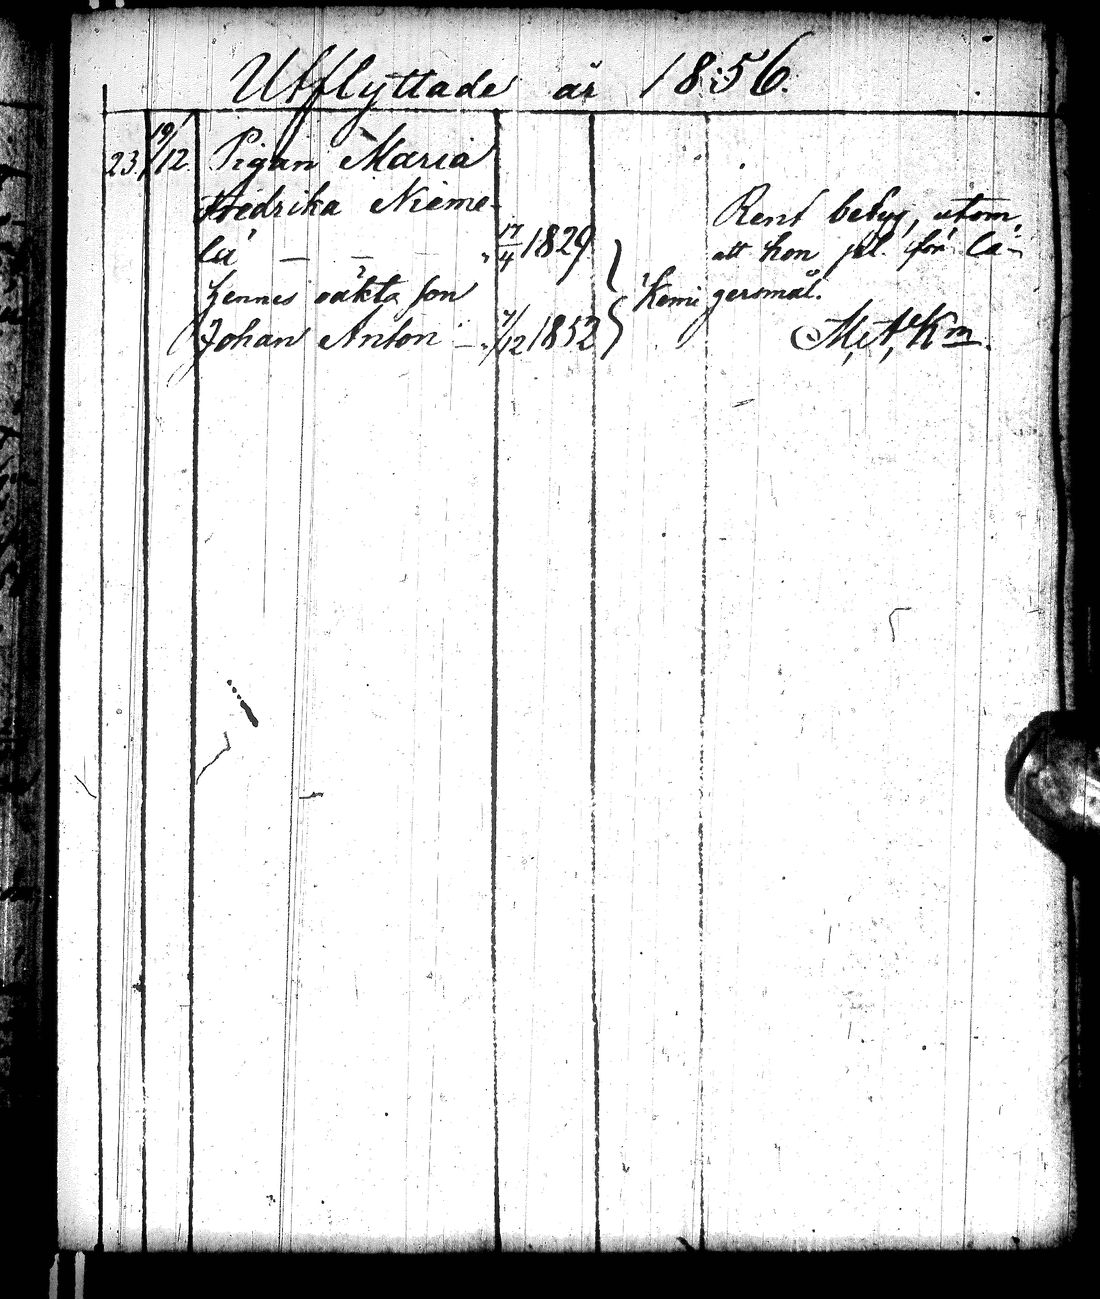 Utflyttade år 1856.
23. 19/12. Pigan Maria
Fredrika Nieme-
lä — — — " 17/4 1829.
Rent betyg, utom,
att hon pl. för lä-
gersmål.
hennes oäkta son
Kemi
Johan Anton — " 7/12 1852